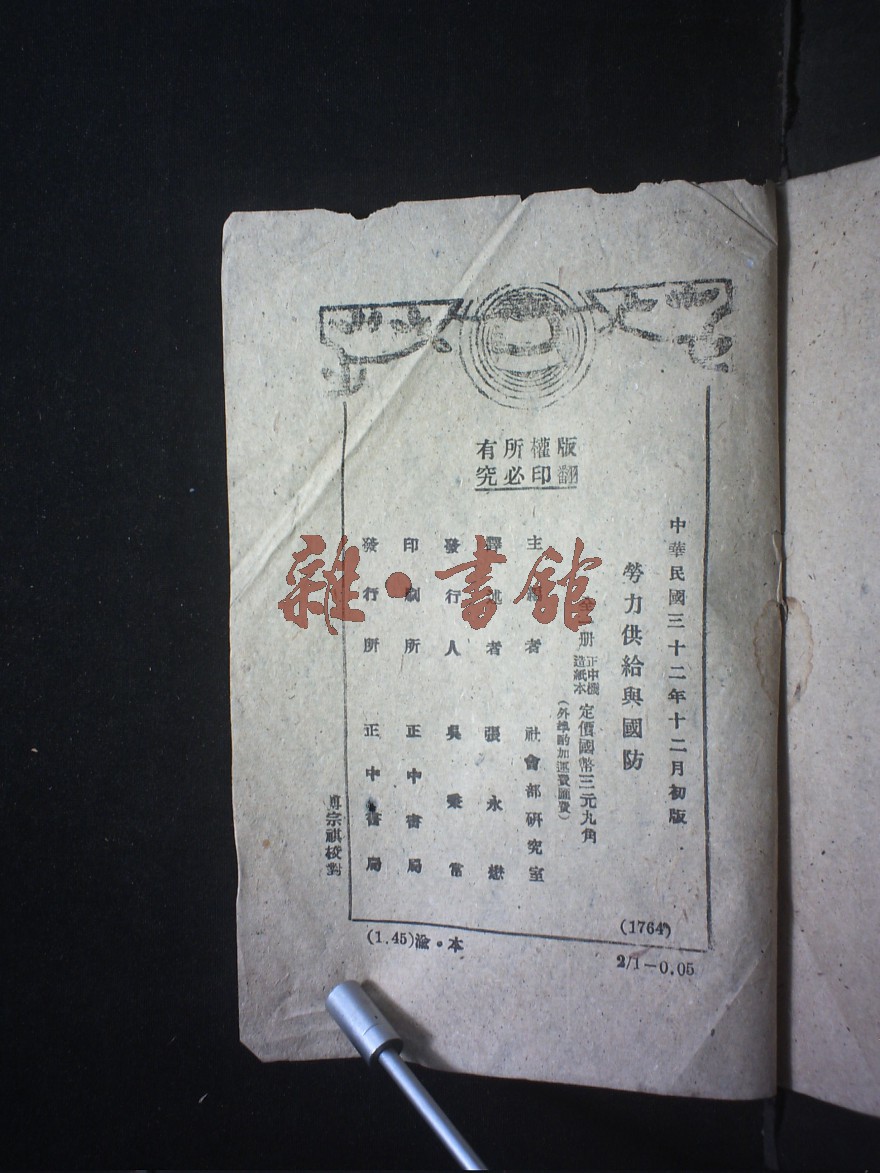 版權所有
翻印必究
中華民國三十二年十二月初版
勞力供給與國防
全一册 正中機造紙本 定價國幣三元九角
(外埠酌加運費匯費)
主編者 社會部研究室
譯述者 張永懋
發行人 吳秉常
印刷所 正中書局
發行所 正中書局
宗祺校對
(1764)
(1.45)渝·本
2/1-0.05
雜·書館